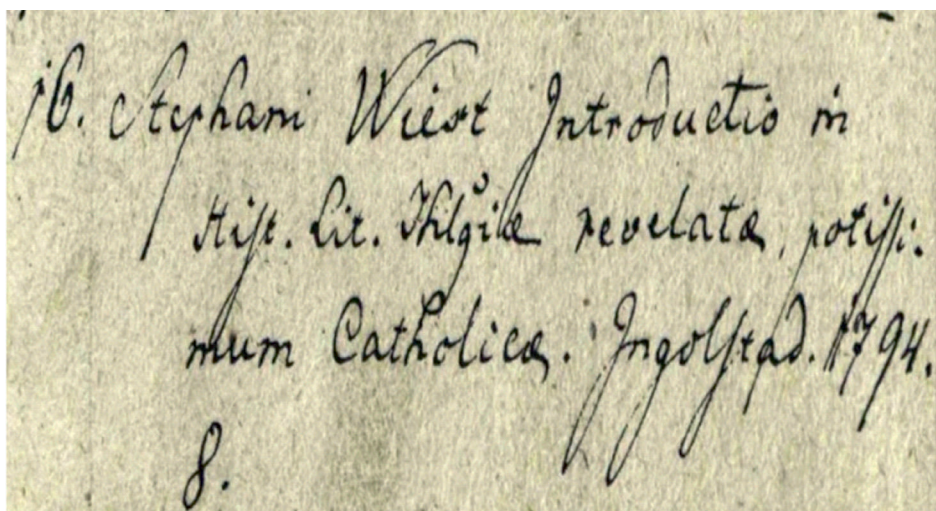 16. Stephani Wiest Introductio in
Hist. Lit. Thlgiæ revelatæ, potissi:
mum Catholicæ. Ingolstad. 1794.
8.